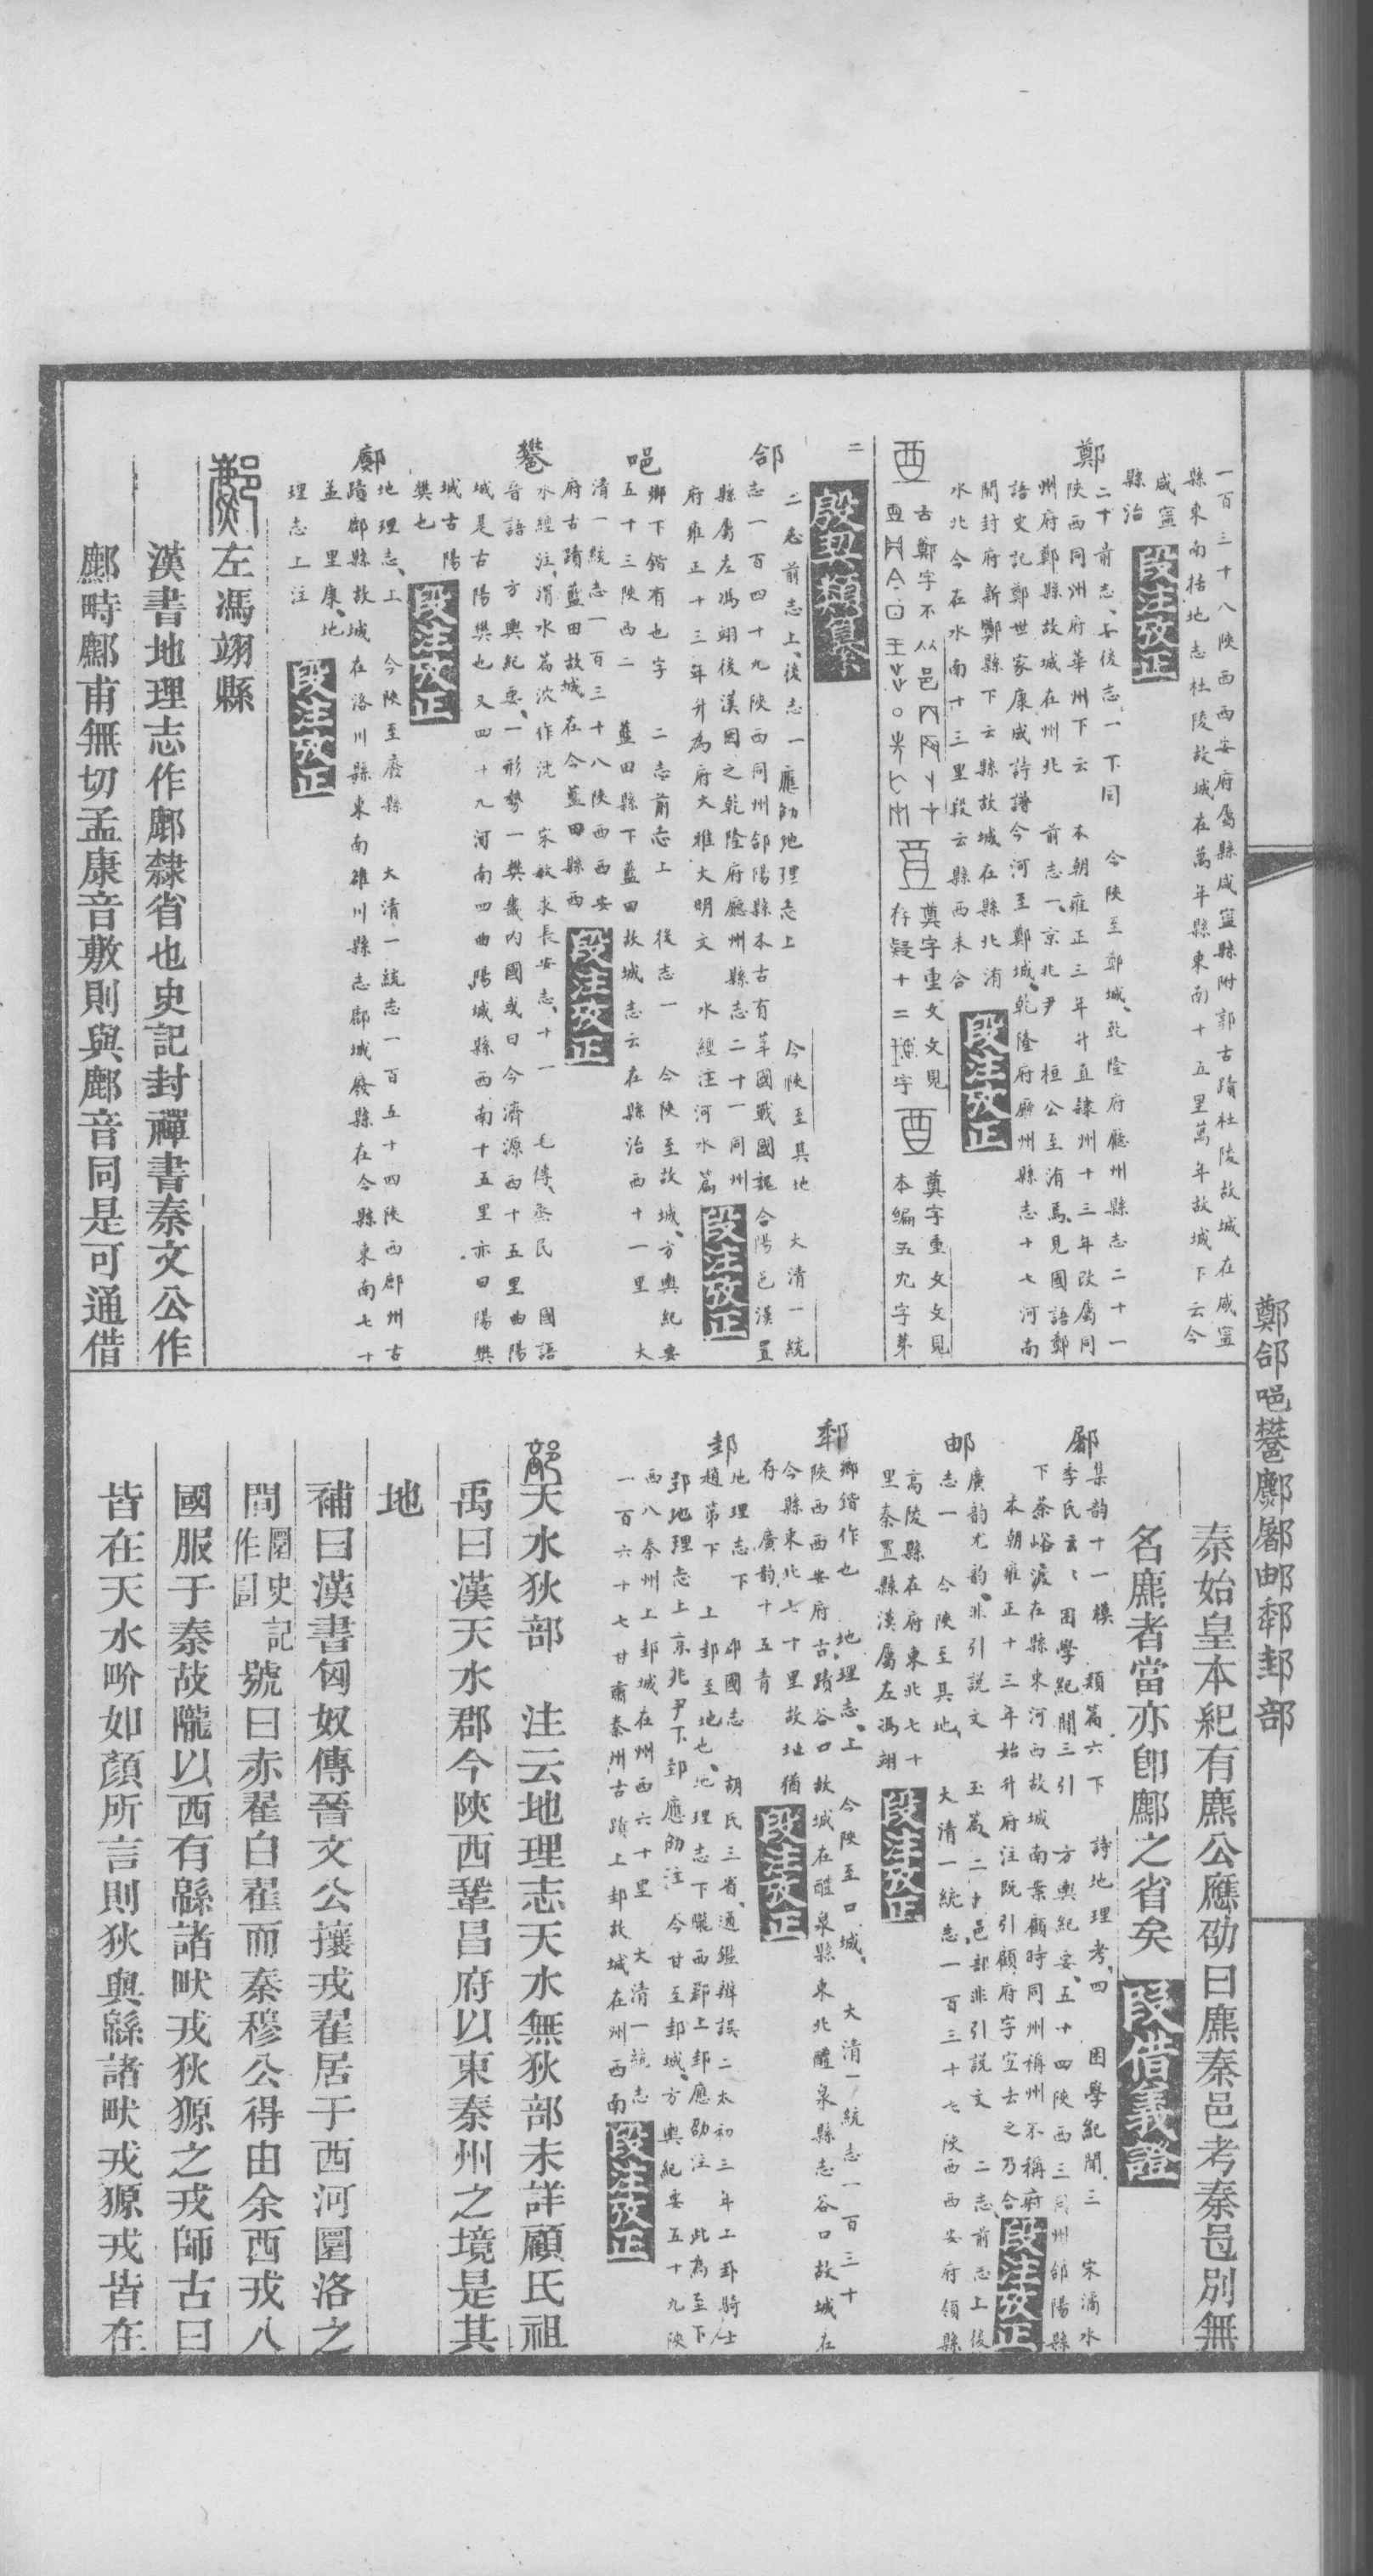 一百三十八陝西西安府屬縣咸寧縣附郭古蹟杜陵故城在咸寧
縣東南括地志杜陵故城在萬年縣東南十五里萬年故城下云今
咸寧
縣治 段注攷正
鄭
二十前志上後志一下同 今陝至鄭城乾隆府廳州縣志二十一
陝西同洲府華州下云 本朝雍正三年升直隸州十三年改屬同
州府鄭縣故城在州北 前志一京兆尹 桓公至洧焉見國語鄭
語史記鄭世家康成詩譜今河至鄭城乾隆府廳州縣志十七河南
開封府新鄭縣下云縣故城在縣北洧
水北今在水南十三里段云縣西未合 段注攷正
古鄭字不从邑
奠字重文文見
存疑十二 字
奠字重文文見
本編五九字第
二 殷契類纂
郃
二志前志上後志一應劭地理志上 今陝至其地 大清一統
志一百四十九陝西同州郃陽縣本古有莘國戰國魏合陽邑漢置
縣屬左馮翊後漢因之乾隆府廳州縣志二十一同州
府雍正十三年升為府大雅大明文 水經注河水篇 段注攷正
𠳮
鄉下鍇有也字 二志前志上 後志一 今陝至故城方輿紀要
五十三陝西二 藍田縣下藍田故城志云在縣治西十一里 大
清一統志一百三十八陝西西安
府古蹟藍田故城在今藍田縣西 段注攷正
水經注渭水篇沈作沈 宋敏求長安志十一 毛傳烝民 國語
晉語 方輿紀要一形勢一樊畿內國或曰今濟源西十五里曲陽
城是古陽樊也又四十九河南四曲陽城縣西南十五里亦曰陽樊
城古陽
樊也 段注攷正
鄜
地理志上 今陝至廢縣 大清一統志一百五十四陝西鄜州古
蹟鄜縣故城在洛川縣東南雒川縣志鄜城廢縣在今縣東南七十
五里康地
理志上注 段注攷正
左馮翊縣
漢書地理志作鄜隸省也史記封禪書秦文公作
鄜畤鄜甫無切孟康音敷則與鄜音同是可通借
鄭郃𠳮鄜郿邮邽部
秦始皇本紀有麃公應劭曰麃秦邑考秦邑別無
名麃者當亦卽鄜之省矣 段借義證
集韵十一模 類篇六下 詩地理考四 困學紀聞三 宋潏水
李氏云云困學紀聞三引 方輿紀要五十四陝西三同州郃陽縣
下荼峪渡在縣東河西故城南案顧時同州稱州不稱府
本朝雍正十三年始升府注既引顧府字宜去之乃合 段注攷正
邮
廣韵尤韵非引説文 玉篇二十邑部非引説文 二志前志上後
志一 今陝至其地 大清一統志一百三十七陝西西安府領縣
高陵縣在府東北七十
里秦置縣漢屬左馮翊 段注攷正
鄉鍇作也 地理志上 今陝至口城 大清一統志一百三十
陝西西安府古蹟谷口故城在醴泉縣東北醴泉縣志谷口故城在
今縣東北七十里故址猶
存 廣韵十五青 段注攷正
邽
地理志下 郡國志 胡氏三省通鑑辨誤二太初三年上邽騎士
趙第下 上邽至地也地理志下隴西郡上邽應劭注 此為至下
邽地理志上京兆尹下邽應劭注 今甘至邽城方輿紀要五十九陝
西八秦州上邽城在州西六十里 大清一統志
一百六十七甘肅秦州古蹟上邽故城在州西南 段注攷正
天水狄部 注云地理志天水無狄部未詳顧氏祖
禹曰漢天水郡今陝西鞏昌府以東秦州之境是其
地
補曰漢書匈奴傳晉文公攘戎翟居于西河圁洛之
間圁史記作圁號曰赤翟白翟而秦穆公得由余西戎八
國服于秦故隴以西有緜諸畎戎狄獂之戎師古曰
皆在天水畍如顏所言則狄與緜諸畎戎獂戎皆在